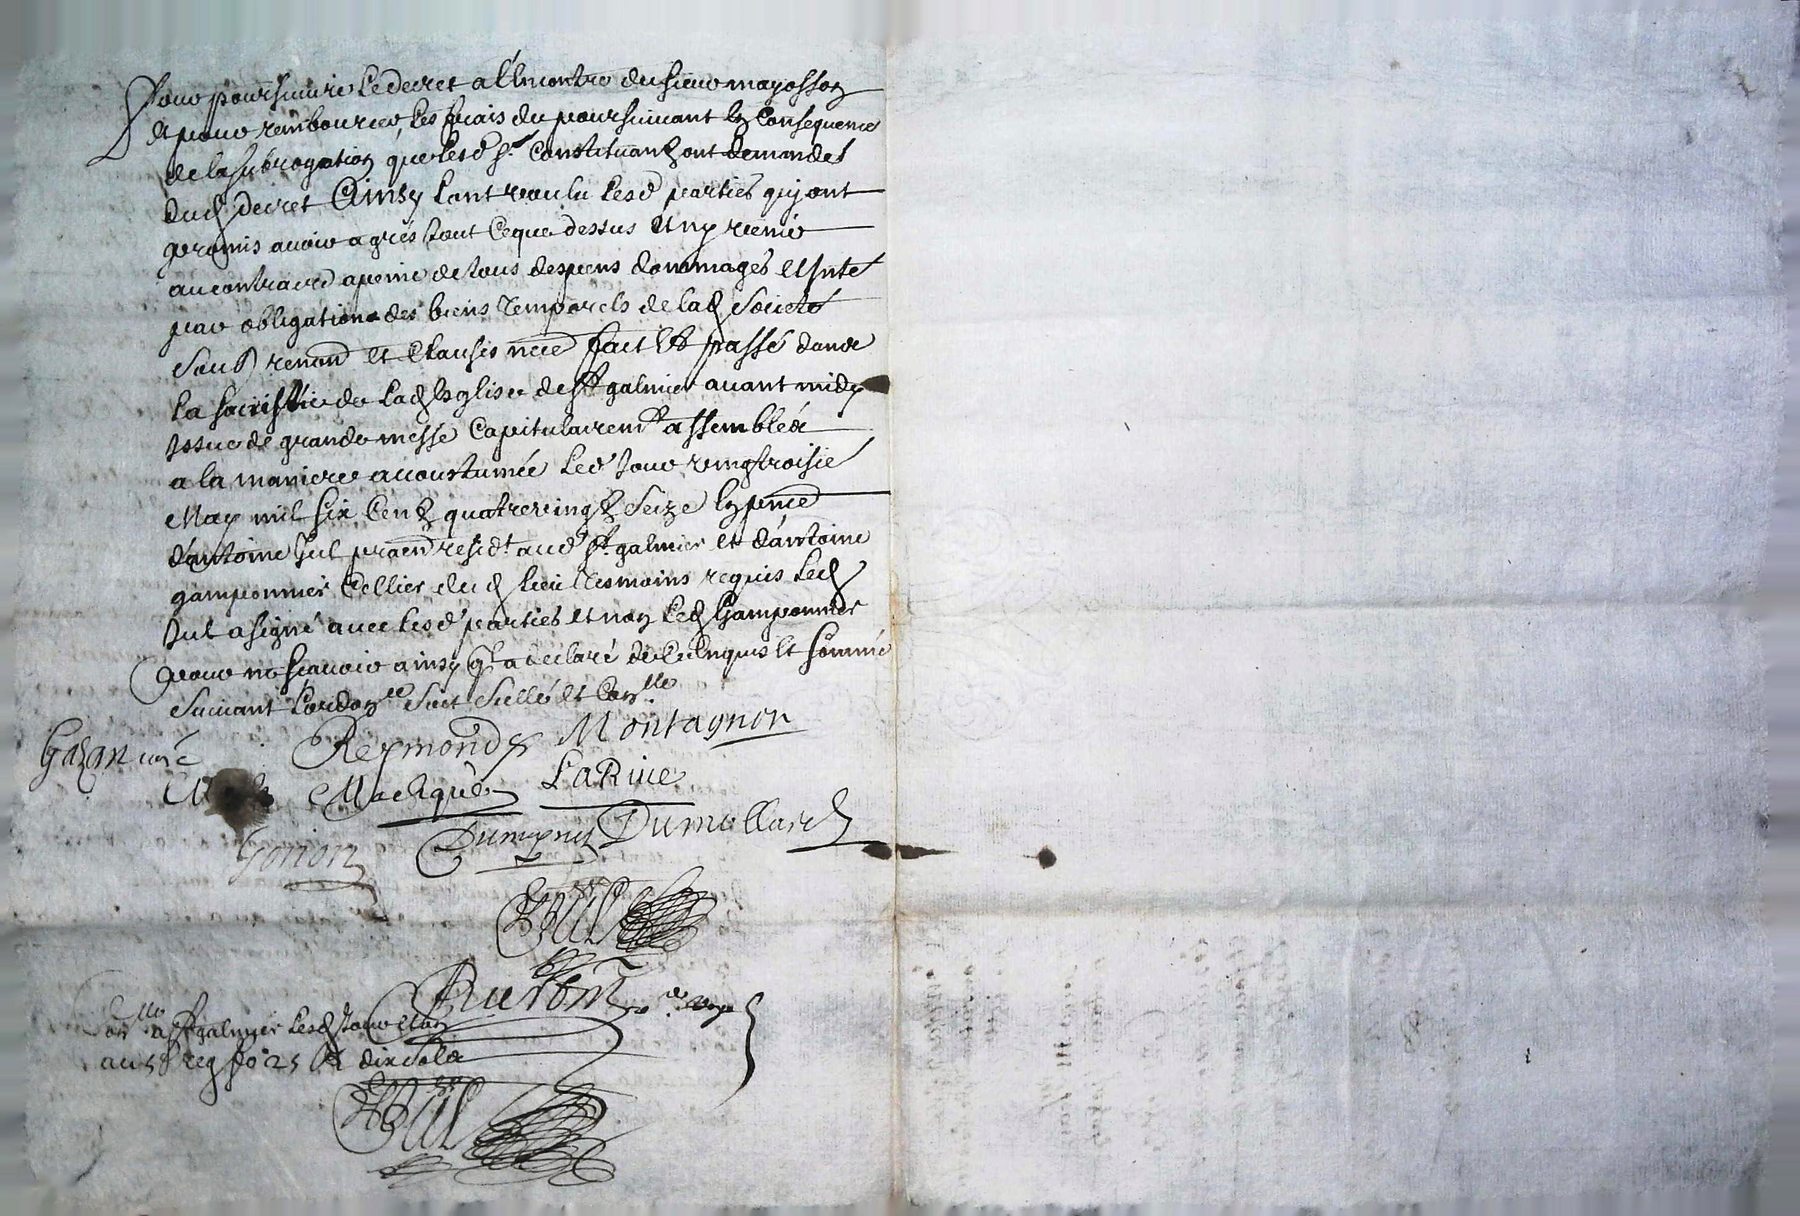 pour poursuivre le decret a l'Encontre du sieur mayosson
et pour rembourcer les frais du poursuivant En Consequence
de la subrogation que lesd srs Constituans ont demandés
dud decret Ainsy l'ont voulu lesd parties quj ont
promis avoir agrés tout Ceque dessus Et ny venir
au contraire a peine de tous despens dommages et Inte
par obligation des biens Temporels de lad Societé
soub renon et Clauses nece fait Et passé dans
la sacristie de lad Esglise de St galmier avant midy
Issue de grande messe Capitulairemt assemblés
a la maniere accoustumée led Jour vingtroisie
May mil six Cens quatrevingt Seize En pnce
d'antoine Jul praen residt aud St galmier et d'antoine
gamponnier Cellier dud lieu Tesmoins requis led
Jul a signé avec lesd parties et non led Gamponnier
pour ne scavoir ainsy qu'il a declaré de ce Enquis et sommé
suivant l'ordonce Soit Sellé et Conlle
Gazan curé Reymond Montagnon
Larive
Gonon Dumollard
Jul
no re roy
Conllé a St galmier lesd Jour et an
au 5e reg fo 25 R dix sols
Jul